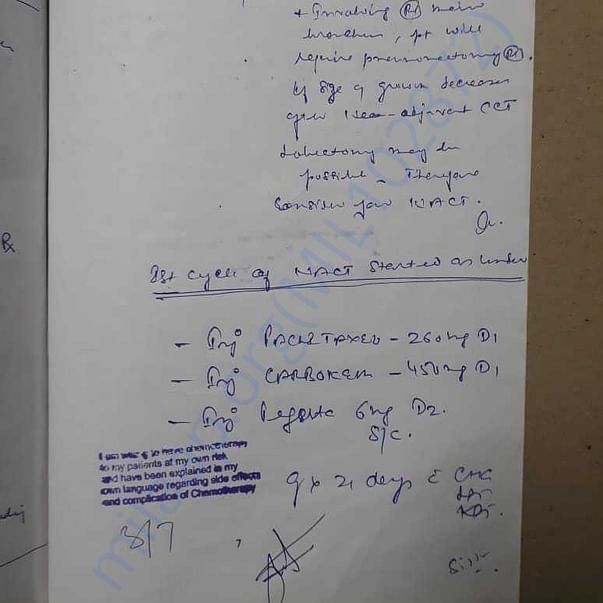 + Involving Rt main
bronchus, pt will
require pneumonectomy Rt.
If size of growth decreases
after Neo-adjuvant CCT
Lobectomy may be
possible. Therefore
Consider for NACT.
1st cycle of NACT started as under
- Inj PACLITAXEL - 260mg D1
- Inj CARBOKEM - 450mg D1
- Inj Pegasta 6mg D2.
S/C.
I am willing to have chemotherapy
to my patients at my own risk
and have been explained in my
own language regarding side effects
and complication of Chemotherapy
q x 21 days c CBC
LFT
KFT.
3/7
7
Rx
milaap.org(MILA1028872)